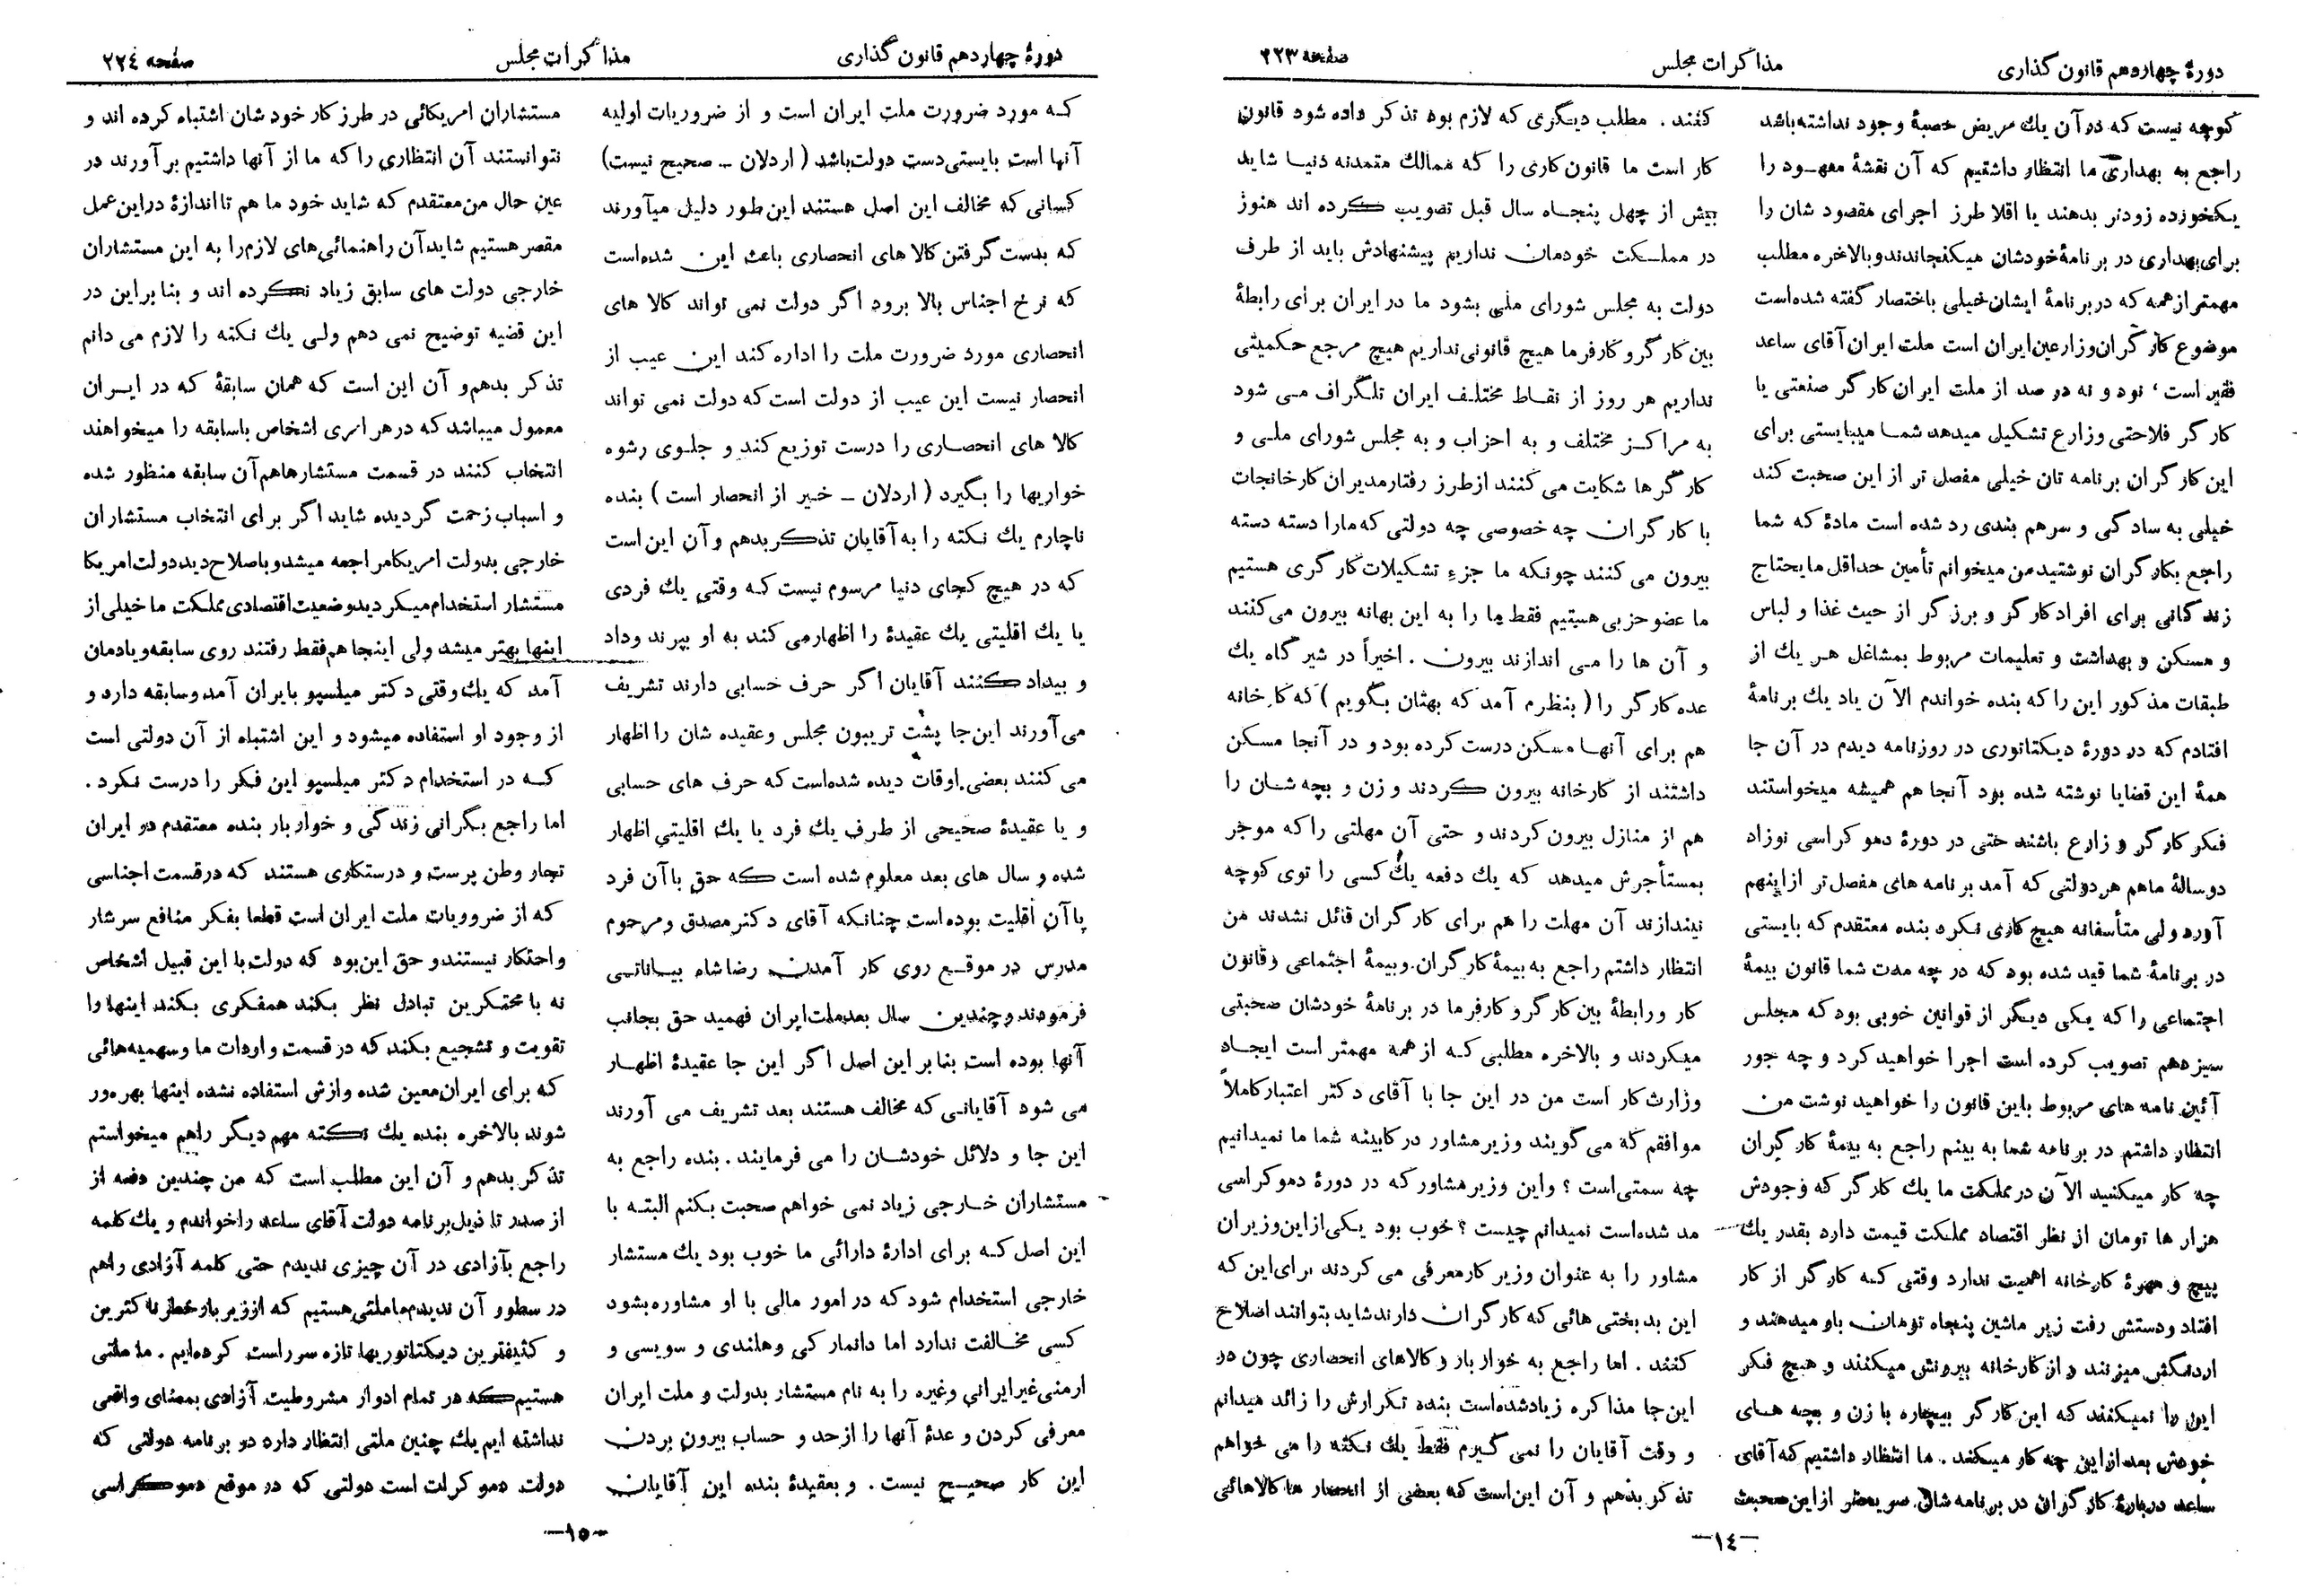 دورهٔ چهاردهم قانون گذاری
مذاکرات مجلس
صفحه ۲۲۳
کوچه نیست که در آن یك مریض حصبهٔ وجود نداشته باشد
راجع به بهداری ما انتظار داشتیم که آن نقشهٔ معهود را
یکخورده زودتر بدهند یا اقلا طرز اجرای مقصود شان را
برای بهداری در برنامهٔ خودشان میگنجاندند و بالاخره مطلب
مهمتر از همه که در برنامهٔ ایشان خیلی باختصار گفته شده است
موضوع کارگران و زارعین ایران است ملت ایران آقای ساعد
فقیر است، نود و نه در صد از ملت ایران کارگر صنعتی یا
کارگر فلاحتی و زارع تشکیل میدهد شما میبایستی برای
این کارگران برنامه تان خیلی مفصل تر از این صحبت کند
خیلی به سادگی و سرهم بندی رد شده است مادهٔ که شما
راجع بکارگران نوشتید من میخوانم تأمین حداقل مایحتاج
زندگانی برای افراد کارگر و برزگر از حیث غذا و لباس
و مسکن و بهداشت و تعلیمات مربوط بمشاغل هر یك از
طبقات مذکور این را که بنده خواندم الآن یاد یك برنامهٔ
افتادم که در دورهٔ دیکتاتوری در روزنامه دیدم در آن جا
همهٔ این قضایا نوشته شده بود آنجا هم همیشه میخواستند
فکر کارگر و زارع باشند حتی در دورهٔ دمو کراسی نوزاد
دوسالهٔ ماهم هر دولتی که آمد برنامه های مفصل تر از اینهم
آورد ولی متأسفانه هیچ کاری نکرد بنده معتقدم که بایستی
در برنامهٔ شما قید شده بود که در چه مدت شما قانون بیمهٔ
اجتماعی را که یکی دیگر از قوانین خوبی بود که مجلس
سیزدهم تصویب کرده است اجرا خواهید کرد و چه جور
آئین نامه های مربوط باین قانون را خواهید نوشت من
انتظار داشتم در برنامه شما به بینم راجع به بیمهٔ کارگران
چه کار میکنید الآن در مملکت ما یك کارگر که وجودش
هزار ها تومان از نظر اقتصاد مملکت قیمت دارد بقدر یك
پیچ و مهرهٔ کارخانه اهمیت ندارد وقتی که کارگر از کار
افتاد و دستش رفت زیر ماشین پنجاه تومان باو میدهند و
اردنگش میزنند و از کارخانه بیرونش میکنند و هیچ فکر
این را نمیکنند که این کارگر بیچاره با زن و بچه های
خودش بعد از این چه کار میکند. ما انتظار داشتیم که آقای
ساعد دربارهٔ کارگران در برنامه شان صریحتر از این صحبت
کنند. مطلب دیگری که لازم بود تذکر داده شود قانون
کار است ما قانون کاری را که ممالك متمدنه دنیا شاید
بیش از چهل پنجاه سال قبل تصویب کرده اند هنوز
در مملکت خودمان نداریم پیشنهادش باید از طرف
دولت به مجلس شورای ملی بشود ما در ایران برای رابطهٔ
بین کارگر و کارفرما هیچ قانونی نداریم هیچ مرجع حکمیتی
نداریم هر روز از نقاط مختلف ایران تلگراف می شود
به مراکز مختلف و به احزاب و به مجلس شورای ملی و
کارگرها شکایت می کنند از طرز رفتار مدیران کارخانجات
با کارگران چه خصوصی چه دولتی که مارا دسته دسته
بیرون می کنند چونکه ما جزء تشکیلات کارگری هستیم
ما عضو حزبی هستیم فقط ما را به این بهانه بیرون می کنند
و آن ها را می اندازند بیرون. اخیراً در شیر گاه یك
عده کارگر را (بنظرم آمد که بهتان بگویم) که کارخانه
هم برای آنها مسکن درست کرده بود و در آنجا مسکن
داشتند از کارخانه بیرون کردند و زن و بچه شان را
هم از منازل بیرون کردند و حتی آن مهلتی را که موجر
بمستأجرش میدهد که یك دفعه یك کسی را توی کوچه
نیندازند آن مهلت را هم برای کارگران قائل نشدند من
انتظار داشتم راجع به بیمهٔ کارگران و بیمهٔ اجتماعی و قانون
کار و رابطهٔ بین کارگر و کارفرما در برنامهٔ خودشان صحبتی
میکردند و بالاخره مطلبی که از همه مهمتر است ایجاد
وزارت کار است من در این جا با آقای دکتر اعتبار کاملاً
موافقم که می گویند وزیر مشاور در کابینه شما ما نمیدانیم
چه سمتی است؟ و این وزیر مشاور که در دورهٔ دموکراسی
مد شده است نمیدانم چیست؟ خوب بود یکی از این وزیران
مشاور را به عنوان وزیر کار معرفی می کردند برای این که
این بدبختی هائی که کارگران دارند شاید بتوانند اصلاح
کنند. اما راجع به خوار بار و کالاهای انحصاری چون در
این جا مذاکره زیاد شده است بنده تکرارش را زائد میدانم
و وقت آقایان را نمی گیرم فقط یك نکته را می خواهم
تذکر بدهم و آن این است که بعضی از انحصار ها کالاهائی
—۱٤—
دورهٔ چهاردهم قانون گذاری
مذاکرات مجلس
صفحه ۲۲٤
که مورد ضرورت ملت ایران است و از ضروریات اولیه
آنها است بایستی دست دولت باشد (اردلان - صحیح نیست)
کسانی که مخالف این اصل هستند این طور دلیل میآورند
که بدست گرفتن کالا های انحصاری باعث این شده است
که نرخ اجناس بالا برود اگر دولت نمی تواند کالا های
انحصاری مورد ضرورت ملت را اداره کند این عیب از
انحصار نیست این عیب از دولت است که دولت نمی تواند
کالا های انحصاری را درست توزیع کند و جلوی رشوه
خواریها را بگیرد (اردلان - خیر از انحصار است) بنده
ناچارم یك نکته را به آقایان تذکر بدهم و آن این است
که در هیچ کجای دنیا مرسوم نیست که وقتی یك فردی
یا یك اقلیتی یك عقیدهٔ را اظهار می کند به او بپرند و داد
و بیداد کنند آقایان اگر حرف حسابی دارند تشریف
می آورند این جا پشت تریبون مجلس و عقیده شان را اظهار
می کنند بعضی اوقات دیده شده است که حرف های حسابی
و یا عقیدهٔ صحیحی از طرف یك فرد یا یك اقلیتی اظهار
شده و سال های بعد معلوم شده است که حق با آن فرد
یا آن اقلیت بوده است چنانکه آقای دکتر مصدق و مرحوم
مدرس در موقع روی کار آمدن رضا شاه بیاناتی
فرمودند و چندین سال بعد ملت ایران فهمید حق بجانب
آنها بوده است بنا بر این اصل اگر این جا عقیدهٔ اظهار
می شود آقایانی که مخالف هستند بعد تشریف می آورند
این جا و دلائل خودشان را می فرمایند. بنده راجع به
مستشاران خارجی زیاد نمی خواهم صحبت بکنم البته با
این اصل که برای ادارهٔ دارائی ما خوب بود یك مستشار
خارجی استخدام شود که در امور مالی با او مشاوره بشود
کسی مخالفت ندارد اما دانمارکی و هلندی و سویسی و
ارمنی غیر ایرانی وغیره را به نام مستشار بدولت و ملت ایران
معرفی کردن و عدهٔ آنها را از حد و حساب بیرون بردن
این کار صحیح نیست. و بعقیدهٔ بنده این آقایان
مستشاران امریکائی در طرز کار خود شان اشتباه کرده اند و
نتوانستند آن انتظاری را که ما از آنها داشتیم بر آورند در
عین حال من معتقدم که شاید خود ما هم تا اندازهٔ در این عمل
مقصر هستیم شاید آن راهنمائی های لازم را به این مستشاران
خارجی دولت های سابق زیاد نکرده اند و بنا براین در
این قضیه توضیح نمی دهم ولی یك نکته را لازم می دانم
تذکر بدهم و آن این است که همان سابقهٔ که در ایران
معمول میباشد که در هر امری اشخاص باسابقه را میخواهند
انتخاب کنند در قسمت مستشارها هم آن سابقه منظور شده
و اسباب زحمت گردیده شاید اگر برای انتخاب مستشاران
خارجی بدولت امریکا مراجعه میشد و باصلاح دید دولت امریکا
مستشار استخدام میکردید وضعیت اقتصادی مملکت ما خیلی از
اینها بهتر میشد ولی اینجا هم فقط رفتند روی سابقه و یادمان
آمد که یك وقتی دکتر میلسپو بایران آمد و سابقه دارد و
از وجود او استفاده میشود و این اشتباه از آن دولتی است
که در استخدام دکتر میلسپو این فکر را درست نکرد.
اما راجع بگرانی زندگی و خوار بار بنده معتقدم در ایران
تجار وطن پرست و درستکاری هستند که در قسمت اجناسی
که از ضروریات ملت ایران است قطعا بفکر منافع سرشار
واحتکار نیستند و حق این بود که دولت با این قبیل اشخاص
نه با محتکرین تبادل نظر بکند همفکری بکند اینها را
تقویت و تشجیع بکند که در قسمت واردات ما و سهمیه هائی
که برای ایران معین شده و ازش استفاده نشده اینها بهره ور
شوند بالاخره بنده یك نکته مهم دیگر را هم میخواستم
تذکر بدهم و آن این مطلب است که من چندین دفعه از
از صدر تا ذیل برنامه دولت آقای ساعد را خواندم و یك کلمه
راجع بآزادی در آن چیزی ندیدم حتی کلمه آزادی را هم
در سطور آن ندیدم ما ملتی هستیم که از زیر بار خطرناکترین
و کثیفترین دیکتاتوریها تازه سر راست کرده ایم. ما ملتی
هستیم که در تمام ادوار مشروطیت آزادی بمعنای واقعی
نداشته ایم یك چنین ملتی انتظار دارد در برنامه دولتی که
دولت دموکرات است دولتی که در موقع دموکراسی
—۱۵—